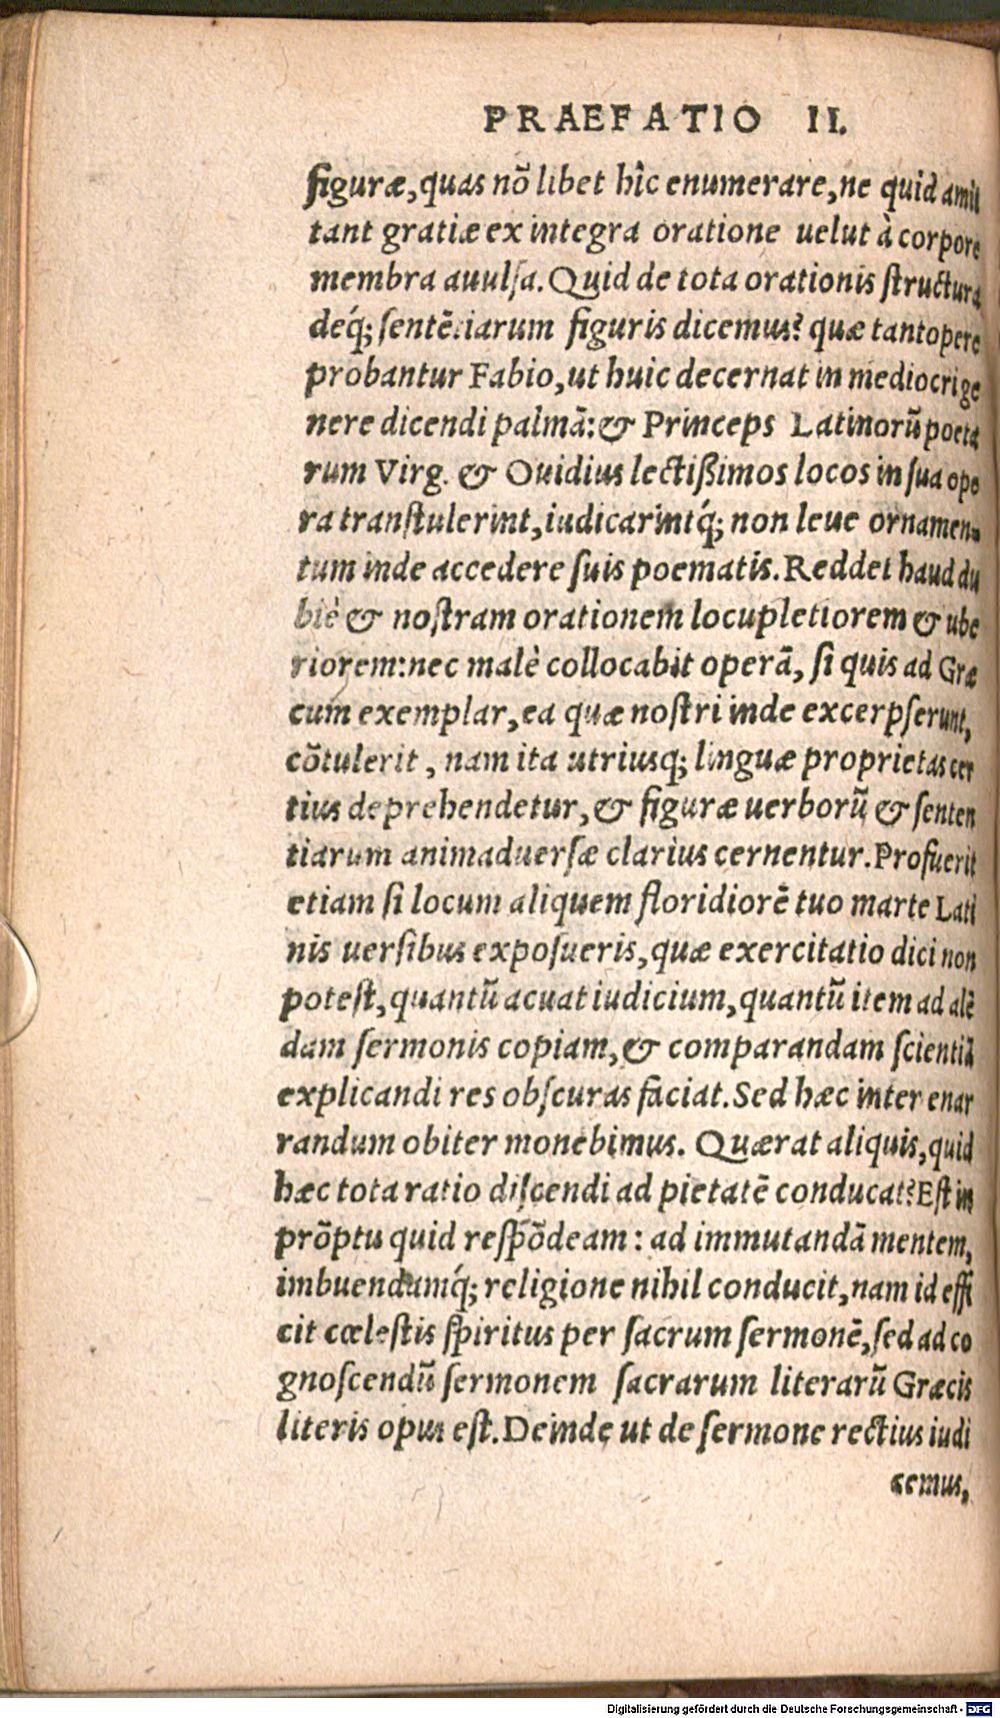 PRAEFATIO II.
figuræ, quas nō libet hîc enumerare, ne quid amit
tant gratiæ ex integra oratione uelut à corpore
membra auulſa. Quid de tota orationis ſtructura
deq́; ſentẽtiarum figuris dicemus? quæ tantopere
probantur Fabio, ut huic decernat in mediocri ge
nere dicendi palmā: & Princeps Latinorũ poeta
rum Virg. & Ouidius lectißimos locos in ſua ope
ra tranſtulerint, iudicarintq́; non leue ornamen-
tum inde accedere ſuis poematis. Reddet haud du
biè & noſtram orationem locupletiorem & ube
riorem: nec malè collocabit operā, ſi quis ad Græ
cum exemplar, ea quæ noſtri inde excerpſerunt,
cōtulerit, nam ita utriusq; linguæ proprietas cer
tius deprehendetur, & figuræ uerborũ & ſenten
tiarum animaduerſæ clarius cernentur. Profuerit
etiam ſi locum aliquem floridiorē tuo marte Lati
nis uerſibus expoſueris, quæ exercitatio dici non
poteſt, quantũ acuat iudicium, quantũ item ad alē
dam ſermonis copiam, & comparandam ſcientiā
explicandi res obſcuras faciat. Sed hæc inter enar
randum obiter monebimus. Quærat aliquis, quid
hæc tota ratio diſcendi ad pietatē conducat? Eſt in
prōptu quid reſpōdeam: ad immutandā mentem,
imbuendamq́; religione nihil conducit, nam id effi
cit cœleſtis ſpiritus per ſacrum ſermonē, ſed ad co
gnoſcendũ ſermonem ſacrarum literarũ Græcis
literis opus eſt. Deinde ut de ſermone rectius iudi
cemus,
Digitalisierung gefördert durch die Deutsche Forschungsgemeinschaft - DFG